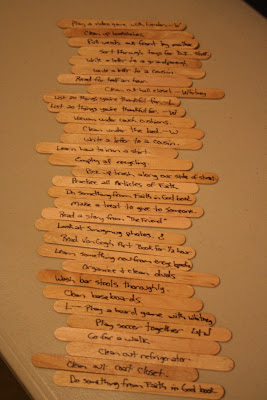 Play a video game with
Clean up
Pull weeds out front by
Sort through toys for D.I.
Write a letter to a grandparent.
Write a letter to a cousin.
Read for half an hour.
Clean out closet - Whitney
List 20 things you're thankful for -
List 20 things you're thankful for - W
Vacuum under couch cushions.
Clean under the bed. - W
Write a letter to a cousin.
Learn how to iron a shirt.
Empty all recycling.
Pick up trash along our side of street
Practice all Articles of Faith
Do something from Faith in God book
Make a treat to give to someone.
Read a story from "The Friend"
Look at Swagman photos.
Read Van Gogh Art Book for 1/2 hour
Learn something new from encyclopedia
Organize + clean dvds
Wash bar stools thoroughly.
Clean baseboards
L - Play a board game with Whitney
Play soccer together L+W
Go for a walk.
Clean out refrigerator.
Clean out coat closet.
Do something from Faith in God book.